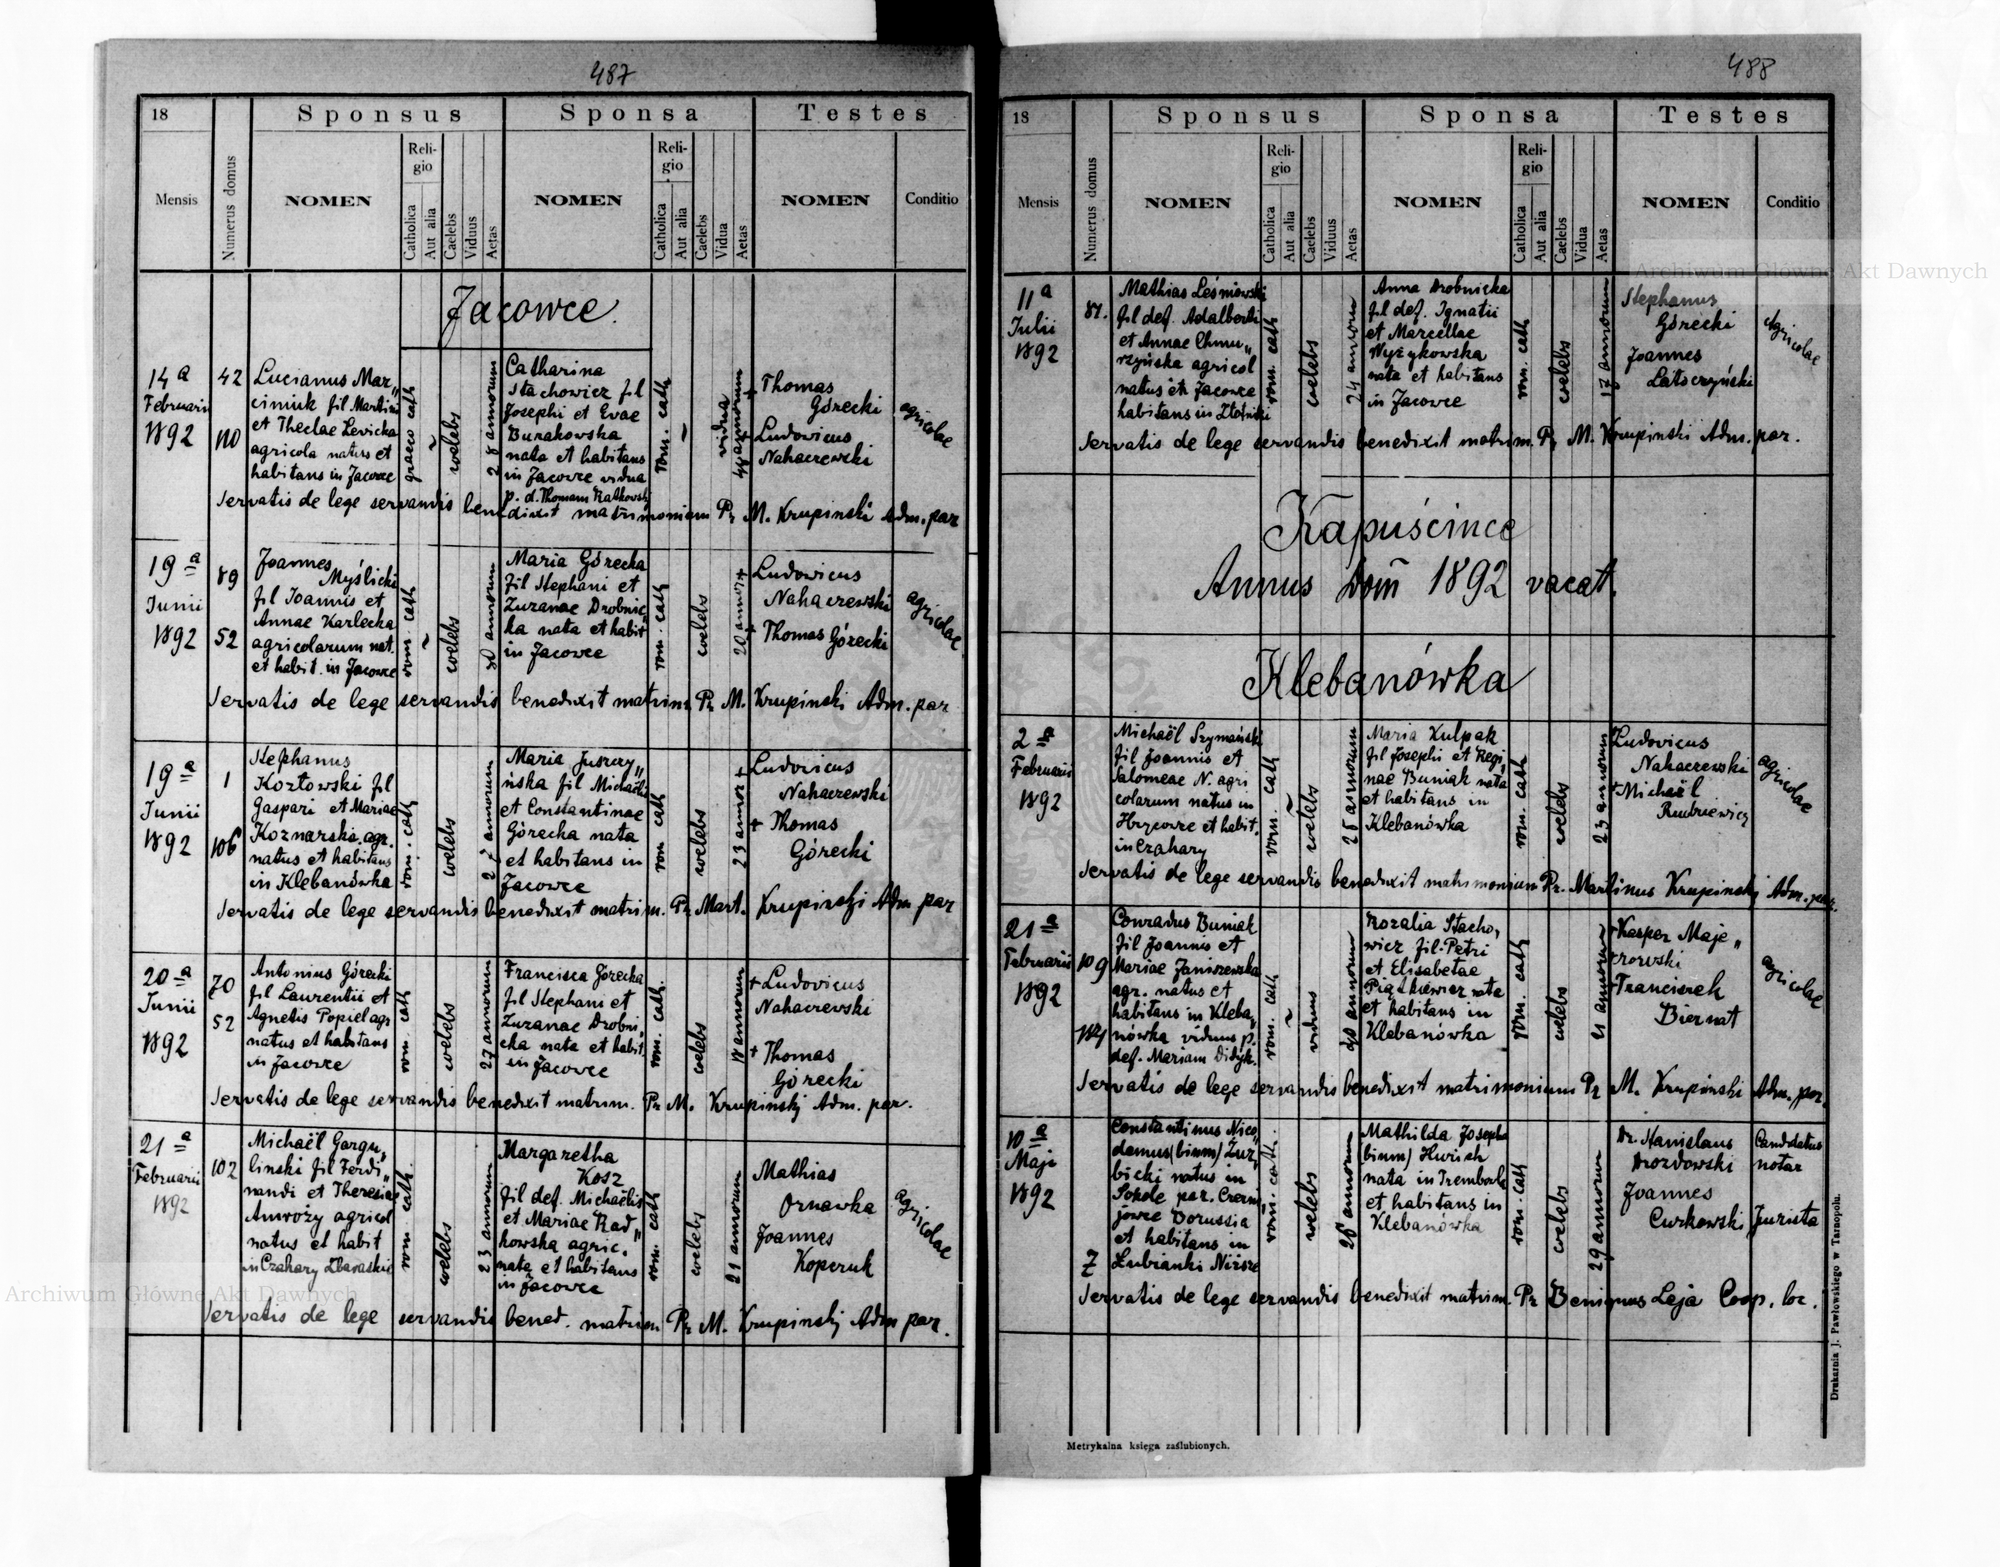 487
18
Sponsus
Sponsa
Testes
Mensis
Numerus domus
NOMEN
Religio
Catholica
Aut alia
Caelebs
Viduus
Aetas
NOMEN
Religio
Catholica
Aut alia
Caelebs
Vidua
Aetas
NOMEN
Conditio
Jacowce
14a
Februarii
1892
42
110
Lucianus Mar„
ciniuk fil Martini
et Theclae Levicka
agricola natus et
habitans in Jacowce
graeco cath
coelebs
28 annorum
Catharina
Stachowicz fil
Josephi et Evae
Burakowska
nata et habitans
in Jacowce vidua
p. d. Thomam Ratkowski
rom. cath
vidua
44 annorum
+ Thomas
Górecki
+ Ludovicus
Nahaczewski
agricolae
Servatis de lege servandis benedixit matrimonium Pr M. Krupinski Adm. par
19a
Junii
1892
89
52
Joannes
Myślicki
fil Joannis et
Annae Karlecka
agricolarum nat.
et habit. in Jacowce
rom. cath
coelebs
30 annorum
Maria Górecka
fil Stephani et
Zuzanae Drobnic„
ka nata et habit
in Jacowce
rom. cath
coelebs
20 annor
+ Ludovicus
Nahaczewski
+ Thomas Górecki
agricolae
Servatis de lege servandis benedixit matrim Pr M. Krupinski Adm. par
19a
Junii
1892
1
106
Stephanus
Kozłowski fil
Gaspari et Mariae
Koznarski agr.
natus et habitans
in Klebanówka
rom. cath
coelebs
annorum
Maria Juszczy„
ńska fil Michaelis
et Constantinae
Górecka nata
et habitans in
Jacowce
rom cath
coelebs
23 annor
+ Ludovicus
Nahaczewski
+ Thomas
Górecki
Servatis de lege servandis benedixit matrim. Pr Mart. Krupinski Adm par
20a
Junii
1892
70
52
Antonius Górecki
fil Laurentii et
Agnetis Popiel agr
natus et habitans
in Jacowce
rom. cath
coelebs
27 annorum
Francisca Górecka
fil Stephani et
Zuzanae Drobni„
cka nata et habit
in Jacowce
rom. cath.
coelebs
18 annorum
+ Ludovicus
Nahaczewski
+ Thomas
Górecki
Servatis de lege servandis benedixit matrim. Pr M. Krupinski Adm. par.
21a
Februarii
1892
102
Michaël Gargu„
linski fil Ferdi„
nandi et Theresia
Amroży agricol
natus et habit
in Czahary Zbaraskie
rom. cath.
coelebs
23 annorum
Margaretha
Kosz
fil def. Michaëlis
et Mariae Rad„
kowska agric.
nata et habitans
in Jacowce
rom. cath
coelebs
21 annorum
Mathias
Ornawka
Joannes
Koperuk
agricolae
Servatis de lege servandis bened. matrim Pr M. Krupinski Adm par.
488
18
Sponsus
Sponsa
Testes
Mensis
Numerus domus
NOMEN
Religio
Catholica
Aut alia
Caelebs
Viduus
Aetas
NOMEN
Religio
Catholica
Aut alia
Caelebs
Vidua
Aetas
NOMEN
Conditio
Archiwum Główne Akt Dawnych
11a
Julii
1892
87.
Mathias Leśniowski
fil def. Adalberti
et Annae Chmu„
rzyńska agricol
natus in Jacowce
habitans in Złotniki
rom. cath
coelebs
24 annorum
Anna Drobnicka
fil def. Ignatii
et Marcellae
Wyżykowska
nata et habitans
in Jacowce
rom. cath
coelebs
17 annorum
Stephanus
Górecki
Joannes
Latoczyński
Agricolae
Servatis de lege servandis benedixit matrim. Pr M. Krupinski Adm. par.
Kapuścince
Annus Domi 1892 vacat.
Klebanówka
2a
Februarii
1892
Michaël Szymański
fil Joannis et
Salomeae N. agri
colarum natus in
Hrycowce et habit.
in Czahary
rom. cath
coelebs
25 annorum
Maria Kulpak
fil Josephi et Regi„
nae Buniak nata
et habitans in
Klebanówka
rom. cath
coelebs
23 annorum
+ Ludovicus
Nahaczewski
+ Michaël
agricolae
Servatis de lege servandis benedixit matrimonium Pr. Martinus Krupinski Adm. par.
21a
Februarii
1892
109
184
Conradus Buniak
fil Joannis et
Mariae Janiszewska
agr. natus et
habitans in Kleba„
nówka viduus p.
def. Mariam Didyk.
rom. cath
viduus
40 annorum
Rozalia Stacho„
wicz fil. Petri
et Elisabetae
Piątkiewicz nata
et habitans in
Klebanówka
rom. cath
coelebs
21 annorum
+ Kasper Maje„
rowski
+ Franciszek
Biernat
agricolae
Servatis de lege servandis benedixit matrimonium Pr M. Krupinski Adm. par.
10a
Maji
1892
7
Constantinus Nico„
demus (binm) Zur„
bicki natus in
Sokole par. Czerni„
jowce Borussia
et habitans in
Lubianki Niższe
rom. cath.
coelebs
28 annorum
Mathilda Josepha
(binm) Hwish
nata in Trembowla
et habitans in
Klebanówka
rom. cath
coelebs
29 annorum
Dr. Stanislaus
Drozdowski
Joannes
Curkowski
Candidatus
notar
Jurista
Servatis de lege servandis benedixit matrim. Pr Benignus Leja Coop. loc.
Archiwum Główne Akt Dawnych
Metrykalna księga zaślubionych.
Drukarnia J. Pawłowskiego w Tarnopolu.